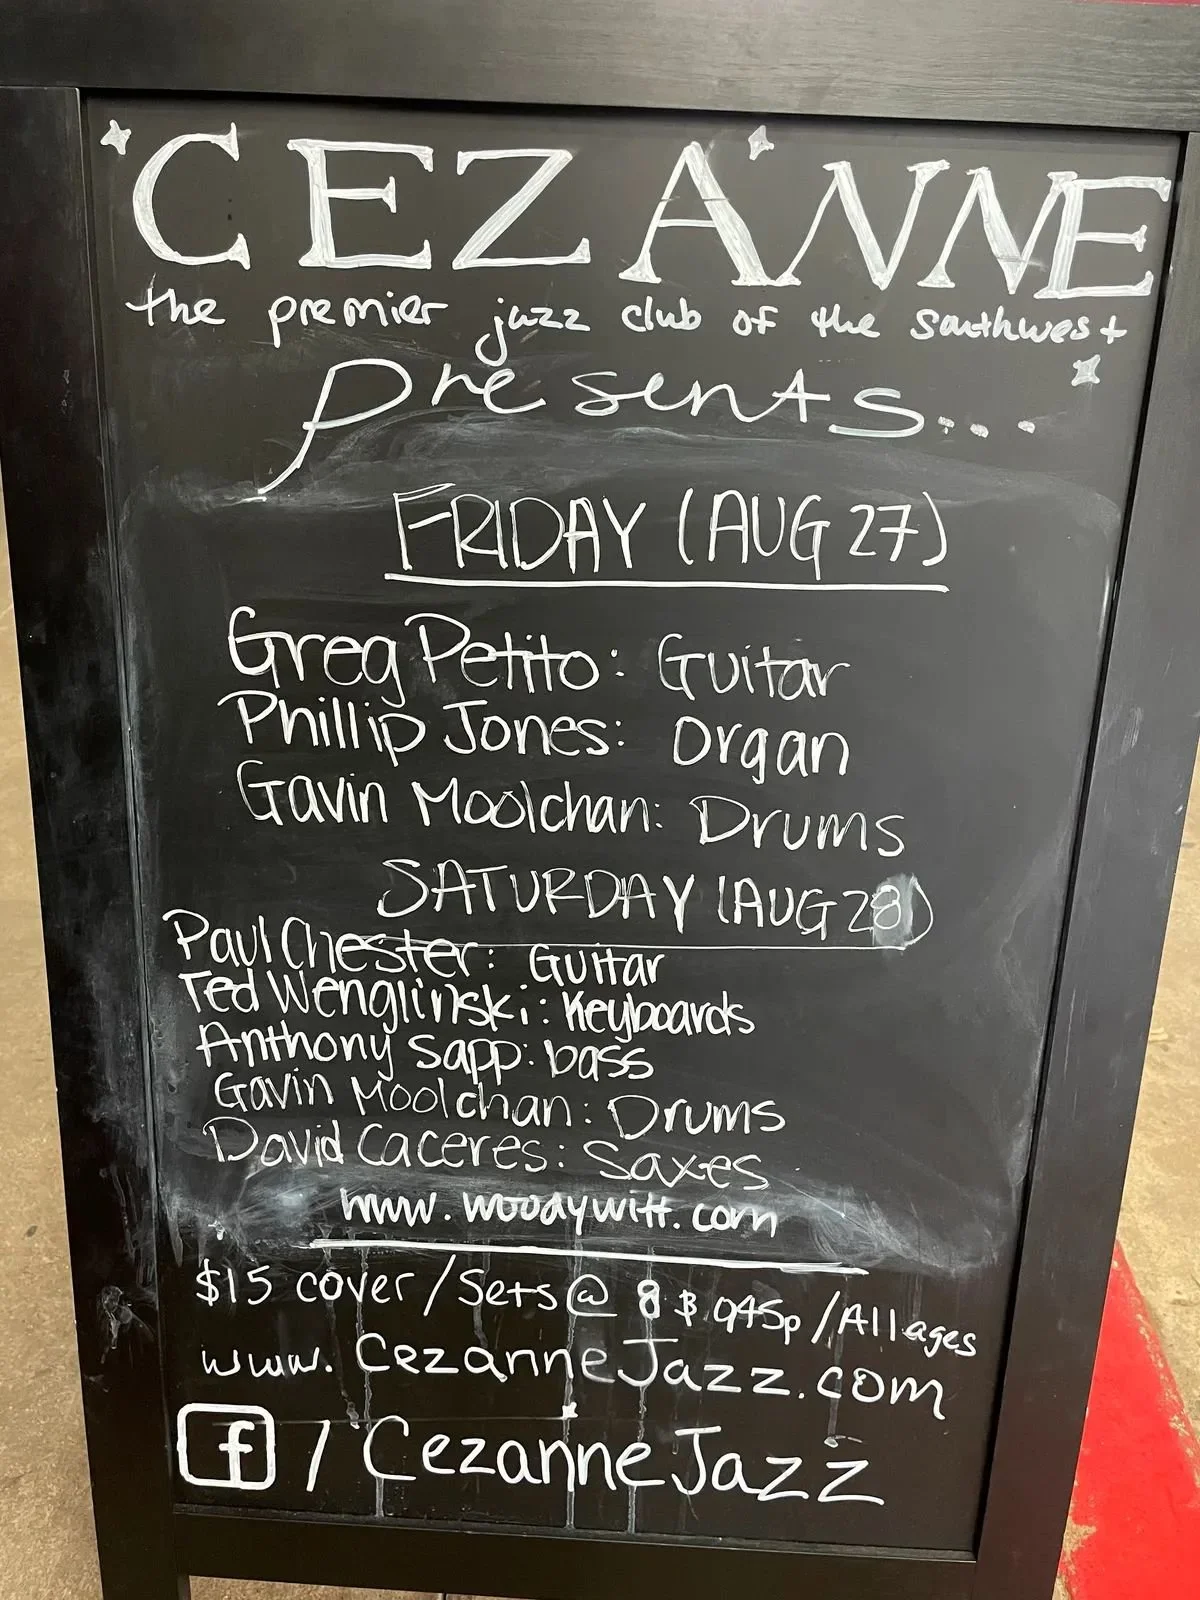 CEZANNE
the premier jazz club of the southwest
presents...
FRIDAY (AUG 27)
Greg Petito: Guitar
Phillip Jones: Organ
Gavin Moolchan: Drums
SATURDAY (AUG 28)
Paul Chester: Guitar
Ted Wenglinski: Keyboards
Anthony Sapp: bass
Gavin Moolchan: Drums
David Caceres: Saxes
www.woodywitt.com
$15 cover/Sets @ 8 & 945p/All ages
www.CezanneJazz.com
f/CezanneJazz